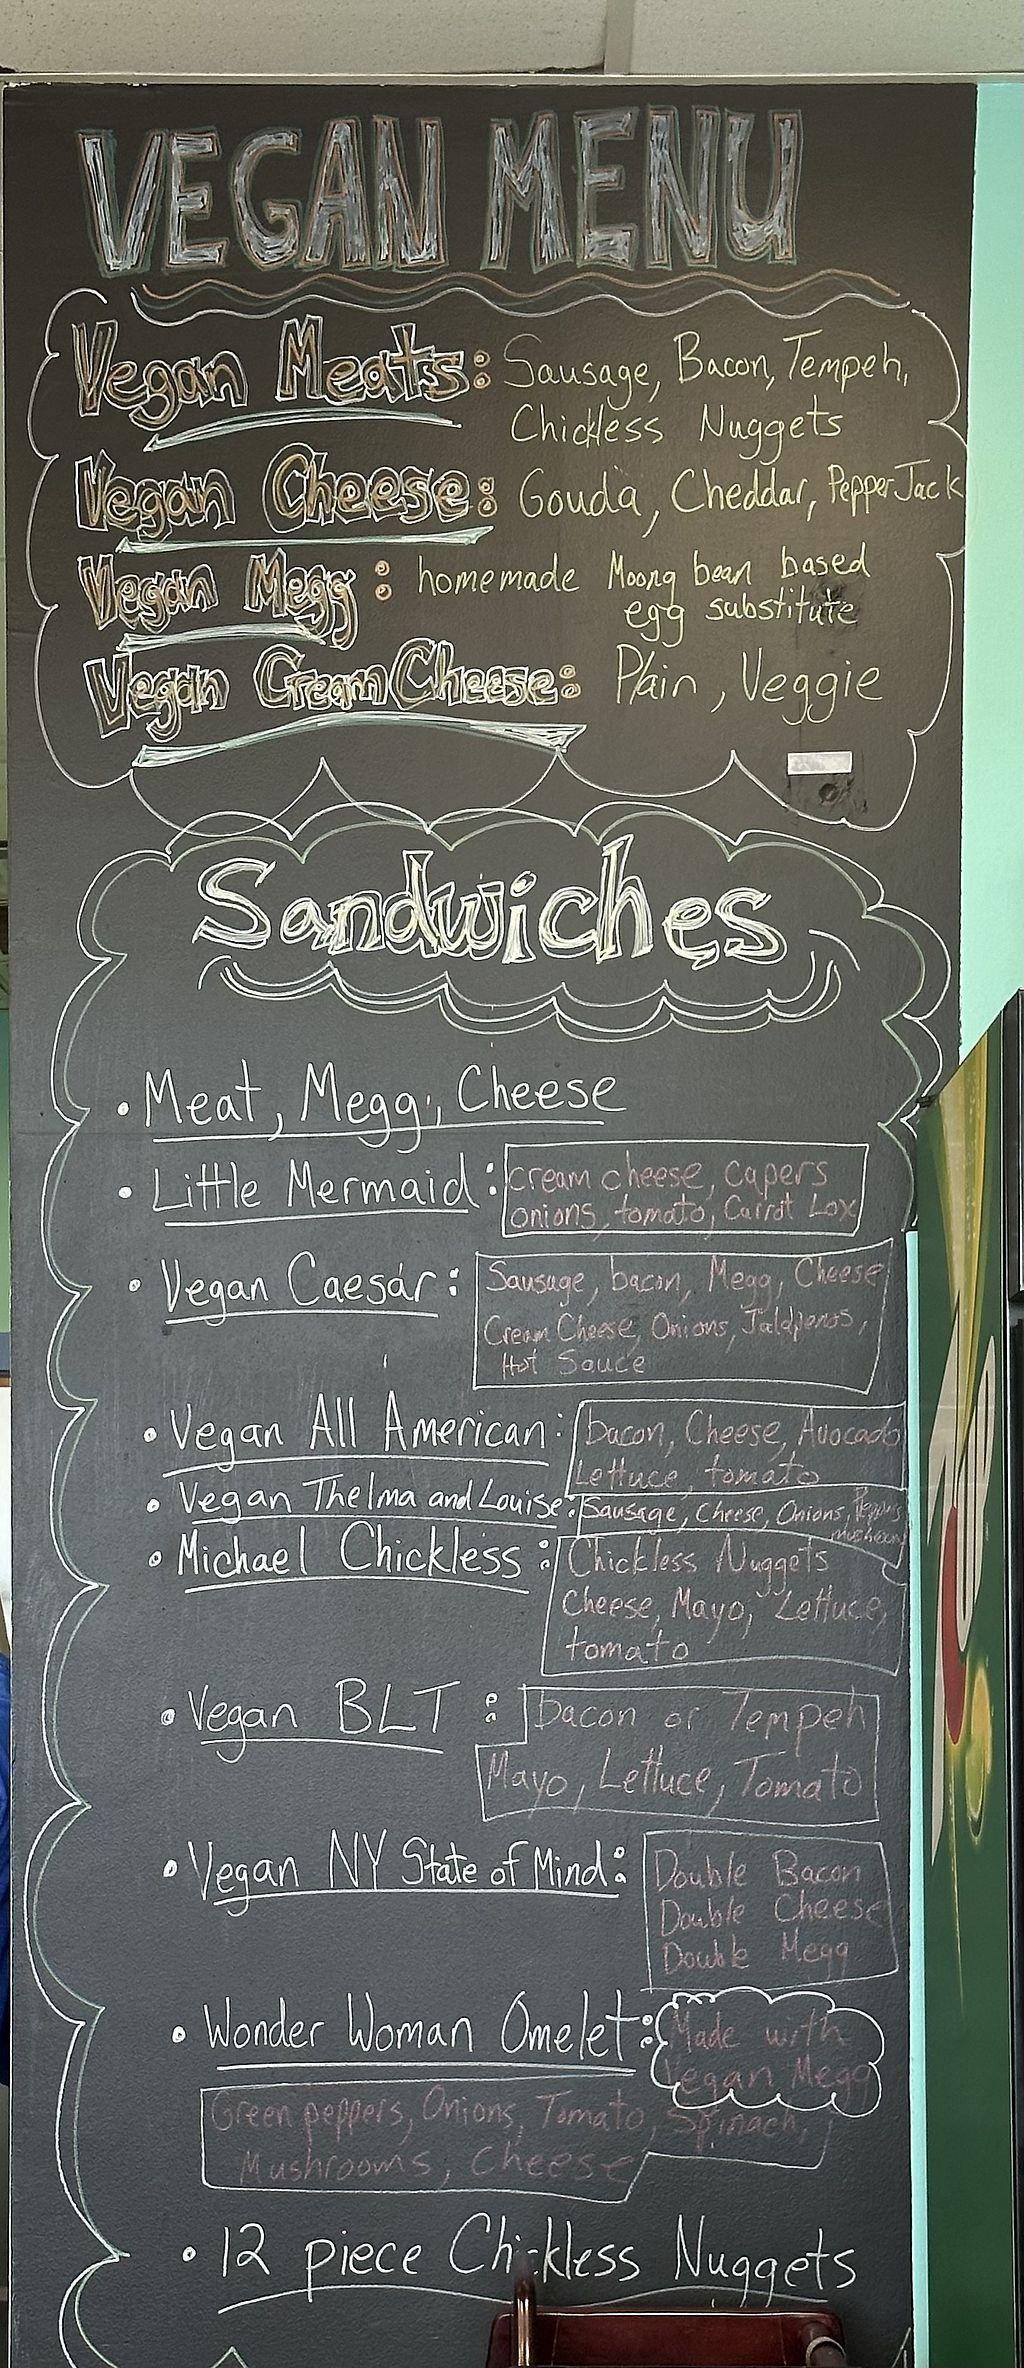 VEGAN MENU
Vegan Meats: Sausage, Bacon, Tempeh,
Chickless Nuggets
Vegan Cheese: Gouda, Cheddar, Pepper Jack
Vegan Megg: homemade Moong bean based
egg substitute
Vegan Cream Cheese: Plain, Veggie
Sandwiches
• Meat, Megg, Cheese
• Little Mermaid: cream cheese, capers
onions, tomato, Carrot Lox
• Vegan Caesar: Sausage, bacon, Megg, Cheese,
Cream Cheese, Onions, Jalapenos,
Hot Sauce
• Vegan All American: bacon, Cheese, Avocado
Lettuce, tomato
• Vegan Thelma and Louise: Sausage, Cheese, Onions, Peppers
mushroom
• Michael Chickless: Chickless Nuggets
Cheese, Mayo, Lettuce,
tomato
• Vegan BLT: bacon or Tempeh
Mayo, Lettuce, Tomato
• Vegan NY State of Mind: Double Bacon
Double Cheese
Double Megg
• Wonder Woman Omelet: Made with
Vegan Megg
Green peppers, Onions, Tomato, Spinach,
Mushrooms, Cheese
• 12 piece Chickless Nuggets